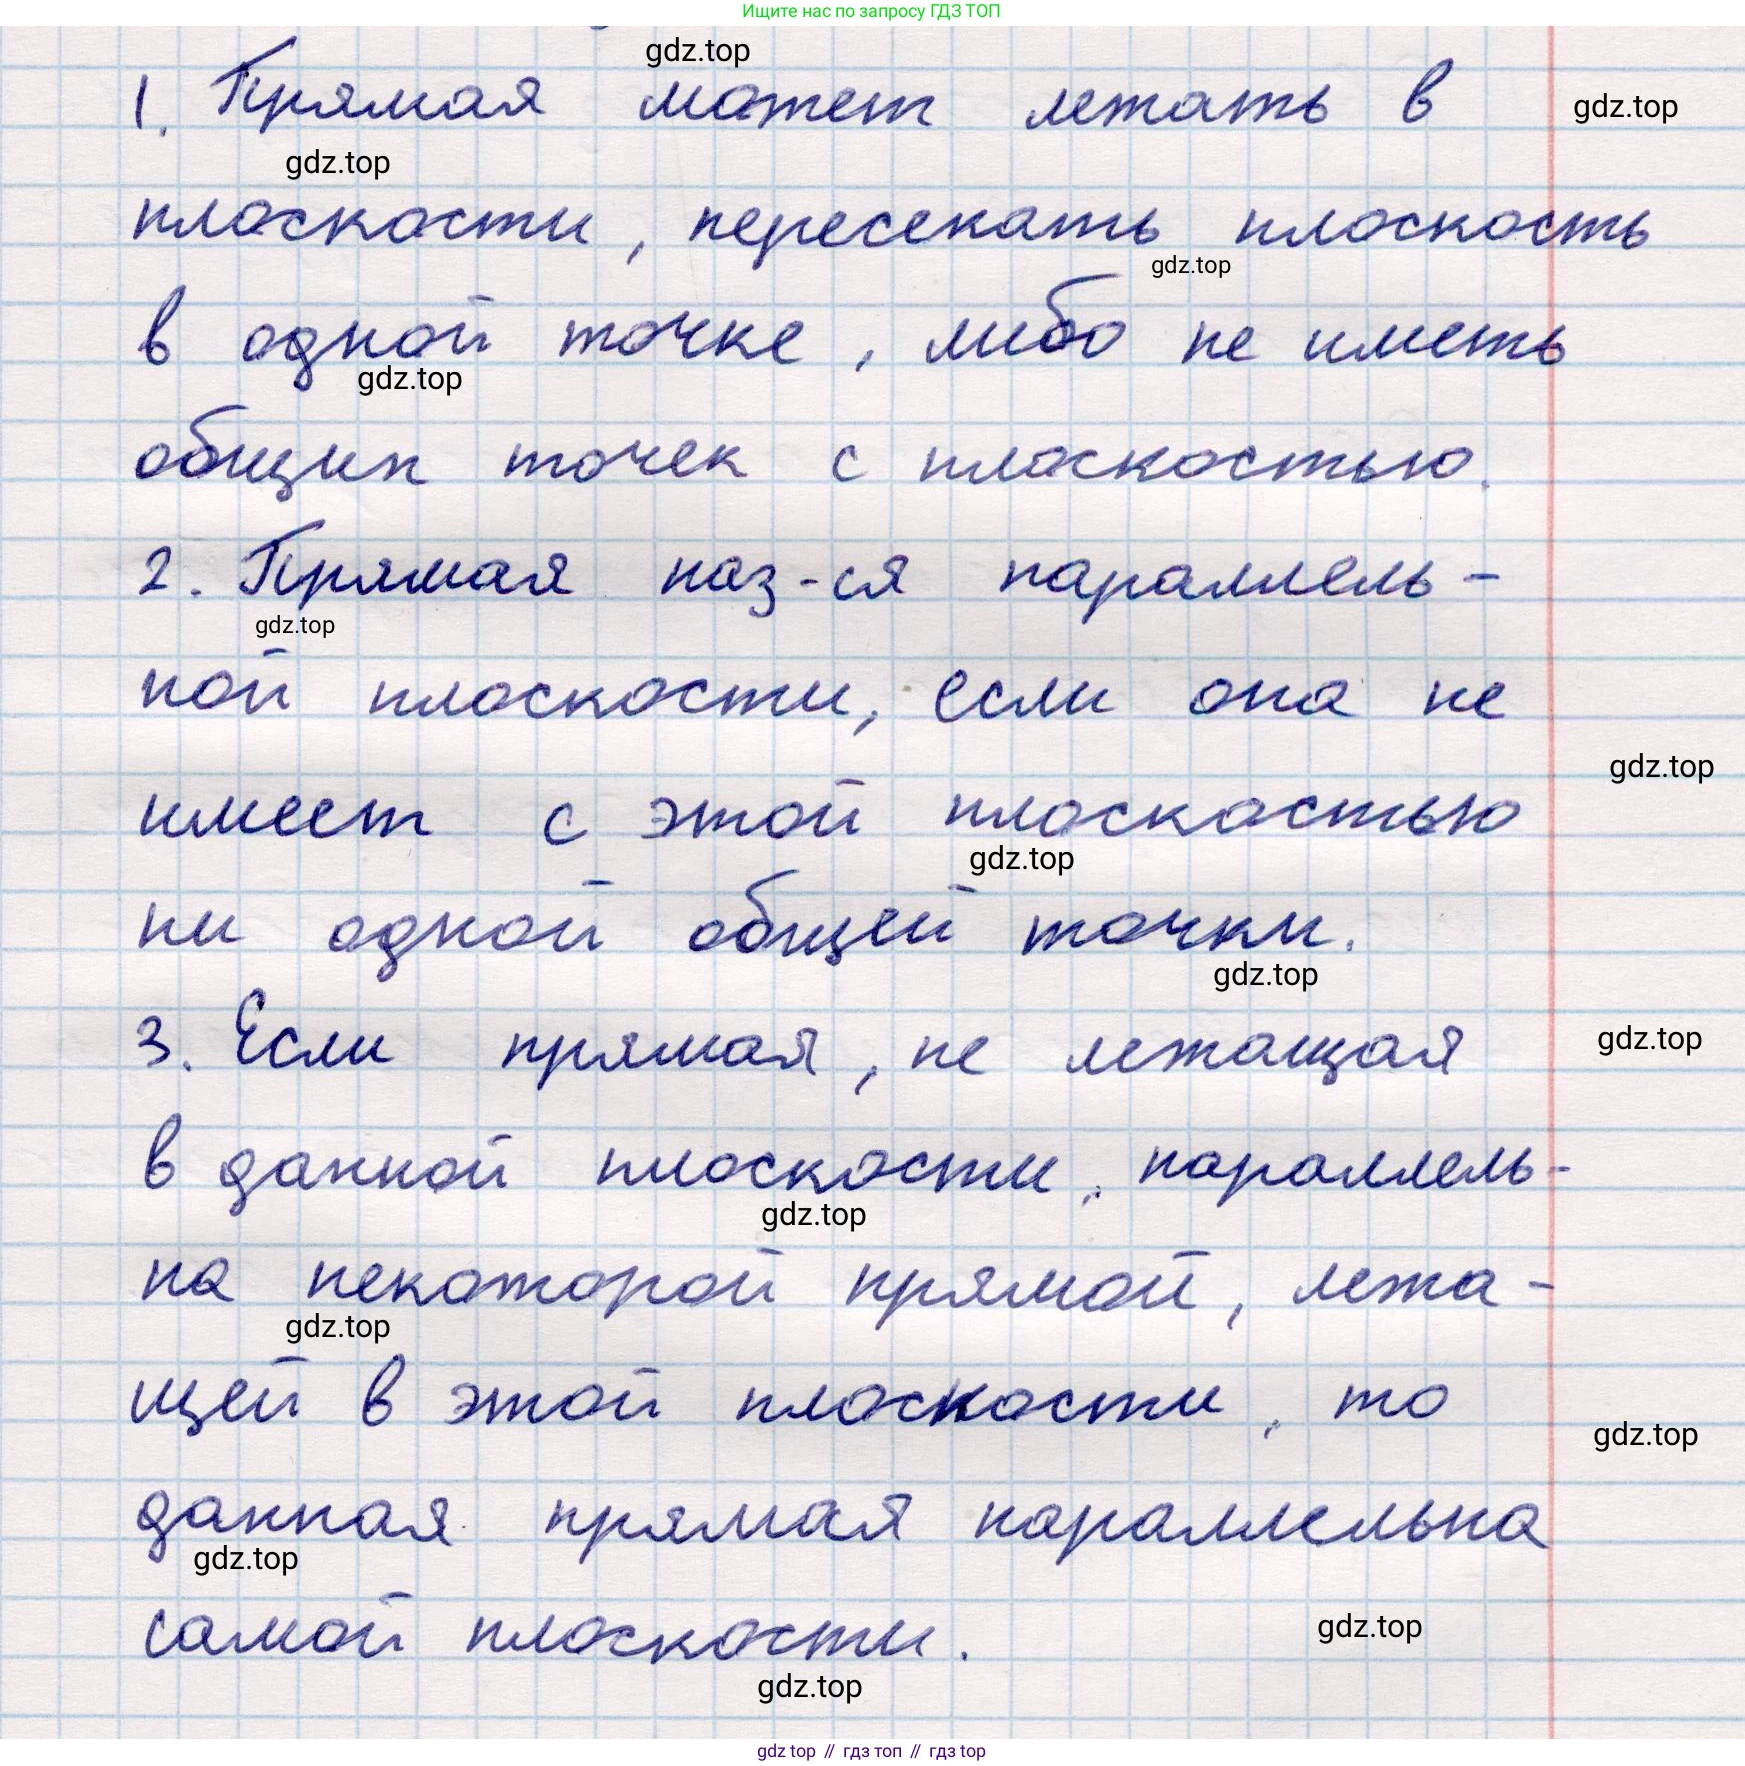 Ищите нас по запросу ГДЗ ТОП
gdz.top
1. Прямая может лежать в
gdz.top
gdz.top
плоскости, пересекать плоскость
gdz.top
в одной точке, либо не иметь
gdz.top
общих точек с плоскостью.
2. Прямая наз-ся параллель-
gdz.top
ной плоскости, если она не
gdz.top
имеет с этой плоскостью
gdz.top
ни одной общей точки.
gdz.top
3. Если прямая, не лежащая
gdz.top
в данной плоскости, параллель-
gdz.top
на некоторой прямой, лежа-
gdz.top
щей в этой плоскости, то
gdz.top
данная прямая параллельна
gdz.top
самой плоскости.
gdz.top
gdz.top
gdz top // гдз топ // гдз top